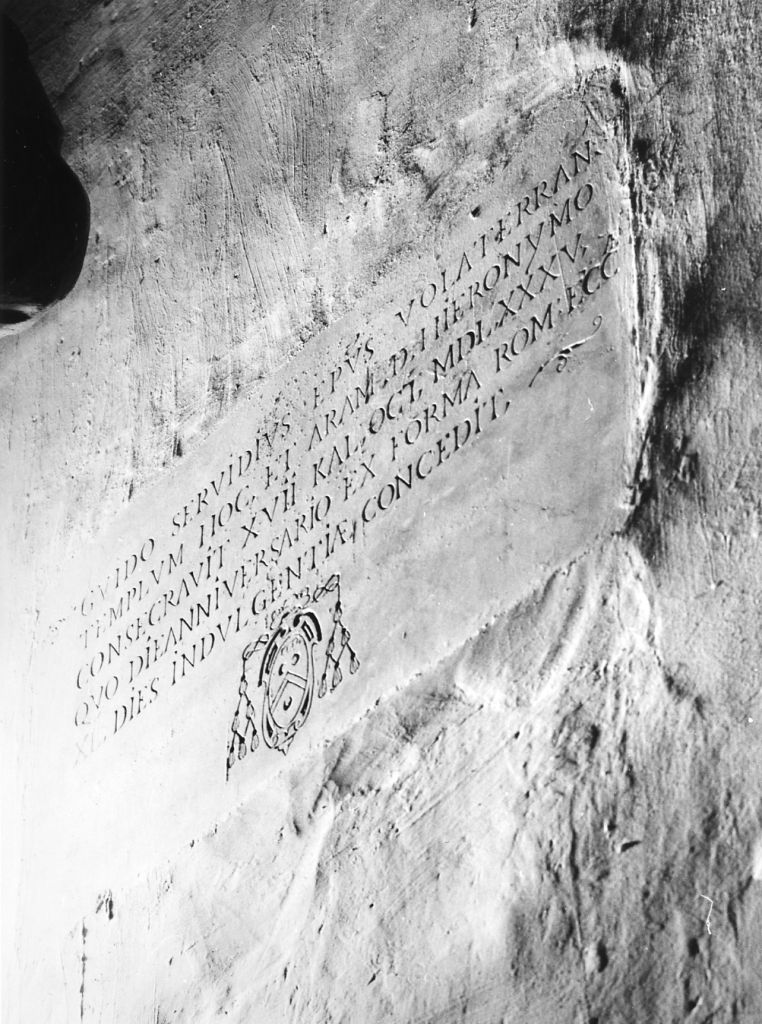 GVIDO SERVIDIVS EPVS VOLATERRAN.
TEMPLVM HOC, ET ARAM, D. HIERONYMO
CONSECRAVIT XVII KAL, OCT, MDLXXXV,
QVO DIE ANNIVERSARIO EX FORMA ROM. ECC
XL, DIES INDVLGENTIÆ, CONCEDIT,